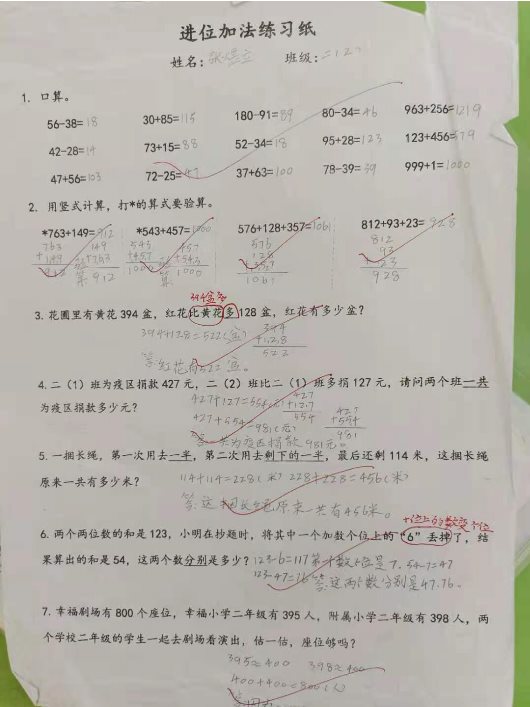 进位加法练习纸
姓名： 班级：二12
1. 口算。
56-38=18 30+85=115 180-91=89 80-34=46 963+256=1219
42-28=14 73+15=88 52-34=18 95+28=123 123+456=579
47+56=103 72-25=47 37+63=100 78-39=39 999+1=1000
2. 用竖式计算，打*的算式要验算。
*763+149=912 *543+457=1000 576+128+357=1061 812+93+23=928
763 149 543 457 576 812
+149 +763 +457 +543 128 93
912 912 1000 1000 +357 +23
验算 验算 1061 928
394盆多
3. 花圃里有黄花 394 盆，红花比黄花多128 盆，红花有多少盆？
394+128=522(盆) 394
+128
答:红花有522盆。 522
4. 二（1）班为疫区捐款 427 元，二（2）班比二（1）班多捐 127 元，请问两个班一共
为疫区捐款多少元？ 427+127=554(元) 427
427+554=981(元) +127 427
554 +554
答:一共为疫区捐款981元。 981
5. 一捆长绳，第一次用去一半，第二次用去剩下的一半，最后还剩 114 米，这捆长绳
原来一共有多少米？ 114+114=228(米) 228+228=456(米)
答:这捆长绳原来一共有456米。
十位上的数变个位
6. 两个两位数的和是 123，小明在抄题时，将其中一个加数个位上的“6”丢掉了，结
果算出的和是 54，这两个数分别是多少？ 123-6=117 第一个数个位是7. 54-7=47
123-47=76 答:这两个数分别是47.76。
7. 幸福剧场有 800 个座位，幸福小学二年级有 395 人，附属小学二年级有 398 人，两
个学校二年级的学生一起去剧场看演出，估一估，座位够吗？
395≈400 398≈400
400+400=800(人)